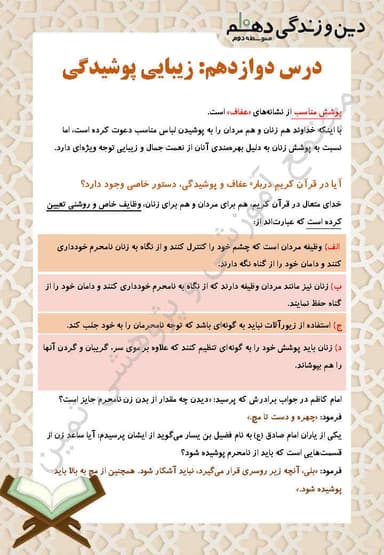 دین و زندگی دهم
متوسطه دوم
درس دوازدهم: زیبایی پوشیدگی
پوشش مناسب از نشانه‌های «عفاف» است.
با اینکه خداوند هم زنان و هم مردان را به پوشیدن لباس مناسب دعوت کرده است، اما
نسبت به پوشش زنان به دلیل بهره‌مندی آنان از نعمت جمال و زیبایی توجه ویژه‌ای دارد.
آیا در قرآن کریم دربارهٔ عفاف و پوشیدگی، دستور خاصی وجود دارد؟
خدای متعال در قرآن کریم، هم برای مردان و هم برای زنان، وظایف خاص و روشنی تعیین
کرده است که عبارت‌اند از:
الف) وظیفه مردان است که چشم خود را کنترل کنند و از نگاه به زنان نامحرم خودداری
کنند و دامان خود را از گناه نگه دارند.
ب) زنان نیز مانند مردان وظیفه دارند که از نگاه به نامحرم خودداری کنند و دامان خود را از
گناه حفظ نمایند.
ج) استفاده از زیورآلات نباید به گونه‌ای باشد که توجه نامحرمان را به خود جلب کند.
د) زنان باید پوشش خود را به گونه‌ای تنظیم کنند که علاوه بر موی سر، گریبان و گردن آنها
را هم بپوشاند.
امام کاظم در جواب برادرش که پرسید: «دیدن چه مقدار از بدن زن نامحرم جایز است؟
فرمود: «چهره و دست تا مچ.»
یکی از یاران امام صادق (ع) به نام فضیل بن یسار می‌گوید از ایشان پرسیدم: آیا ساعد زن از
قسمت‌هایی است که باید از نامحرم پوشیده شود؟
فرمود: «بلی، آنچه زیر روسری قرار می‌گیرد، نباید آشکار شود. همچنین از مچ به بالا باید
پوشیده شود.»
مجتمع آموزشی و پژوهشی ثمین